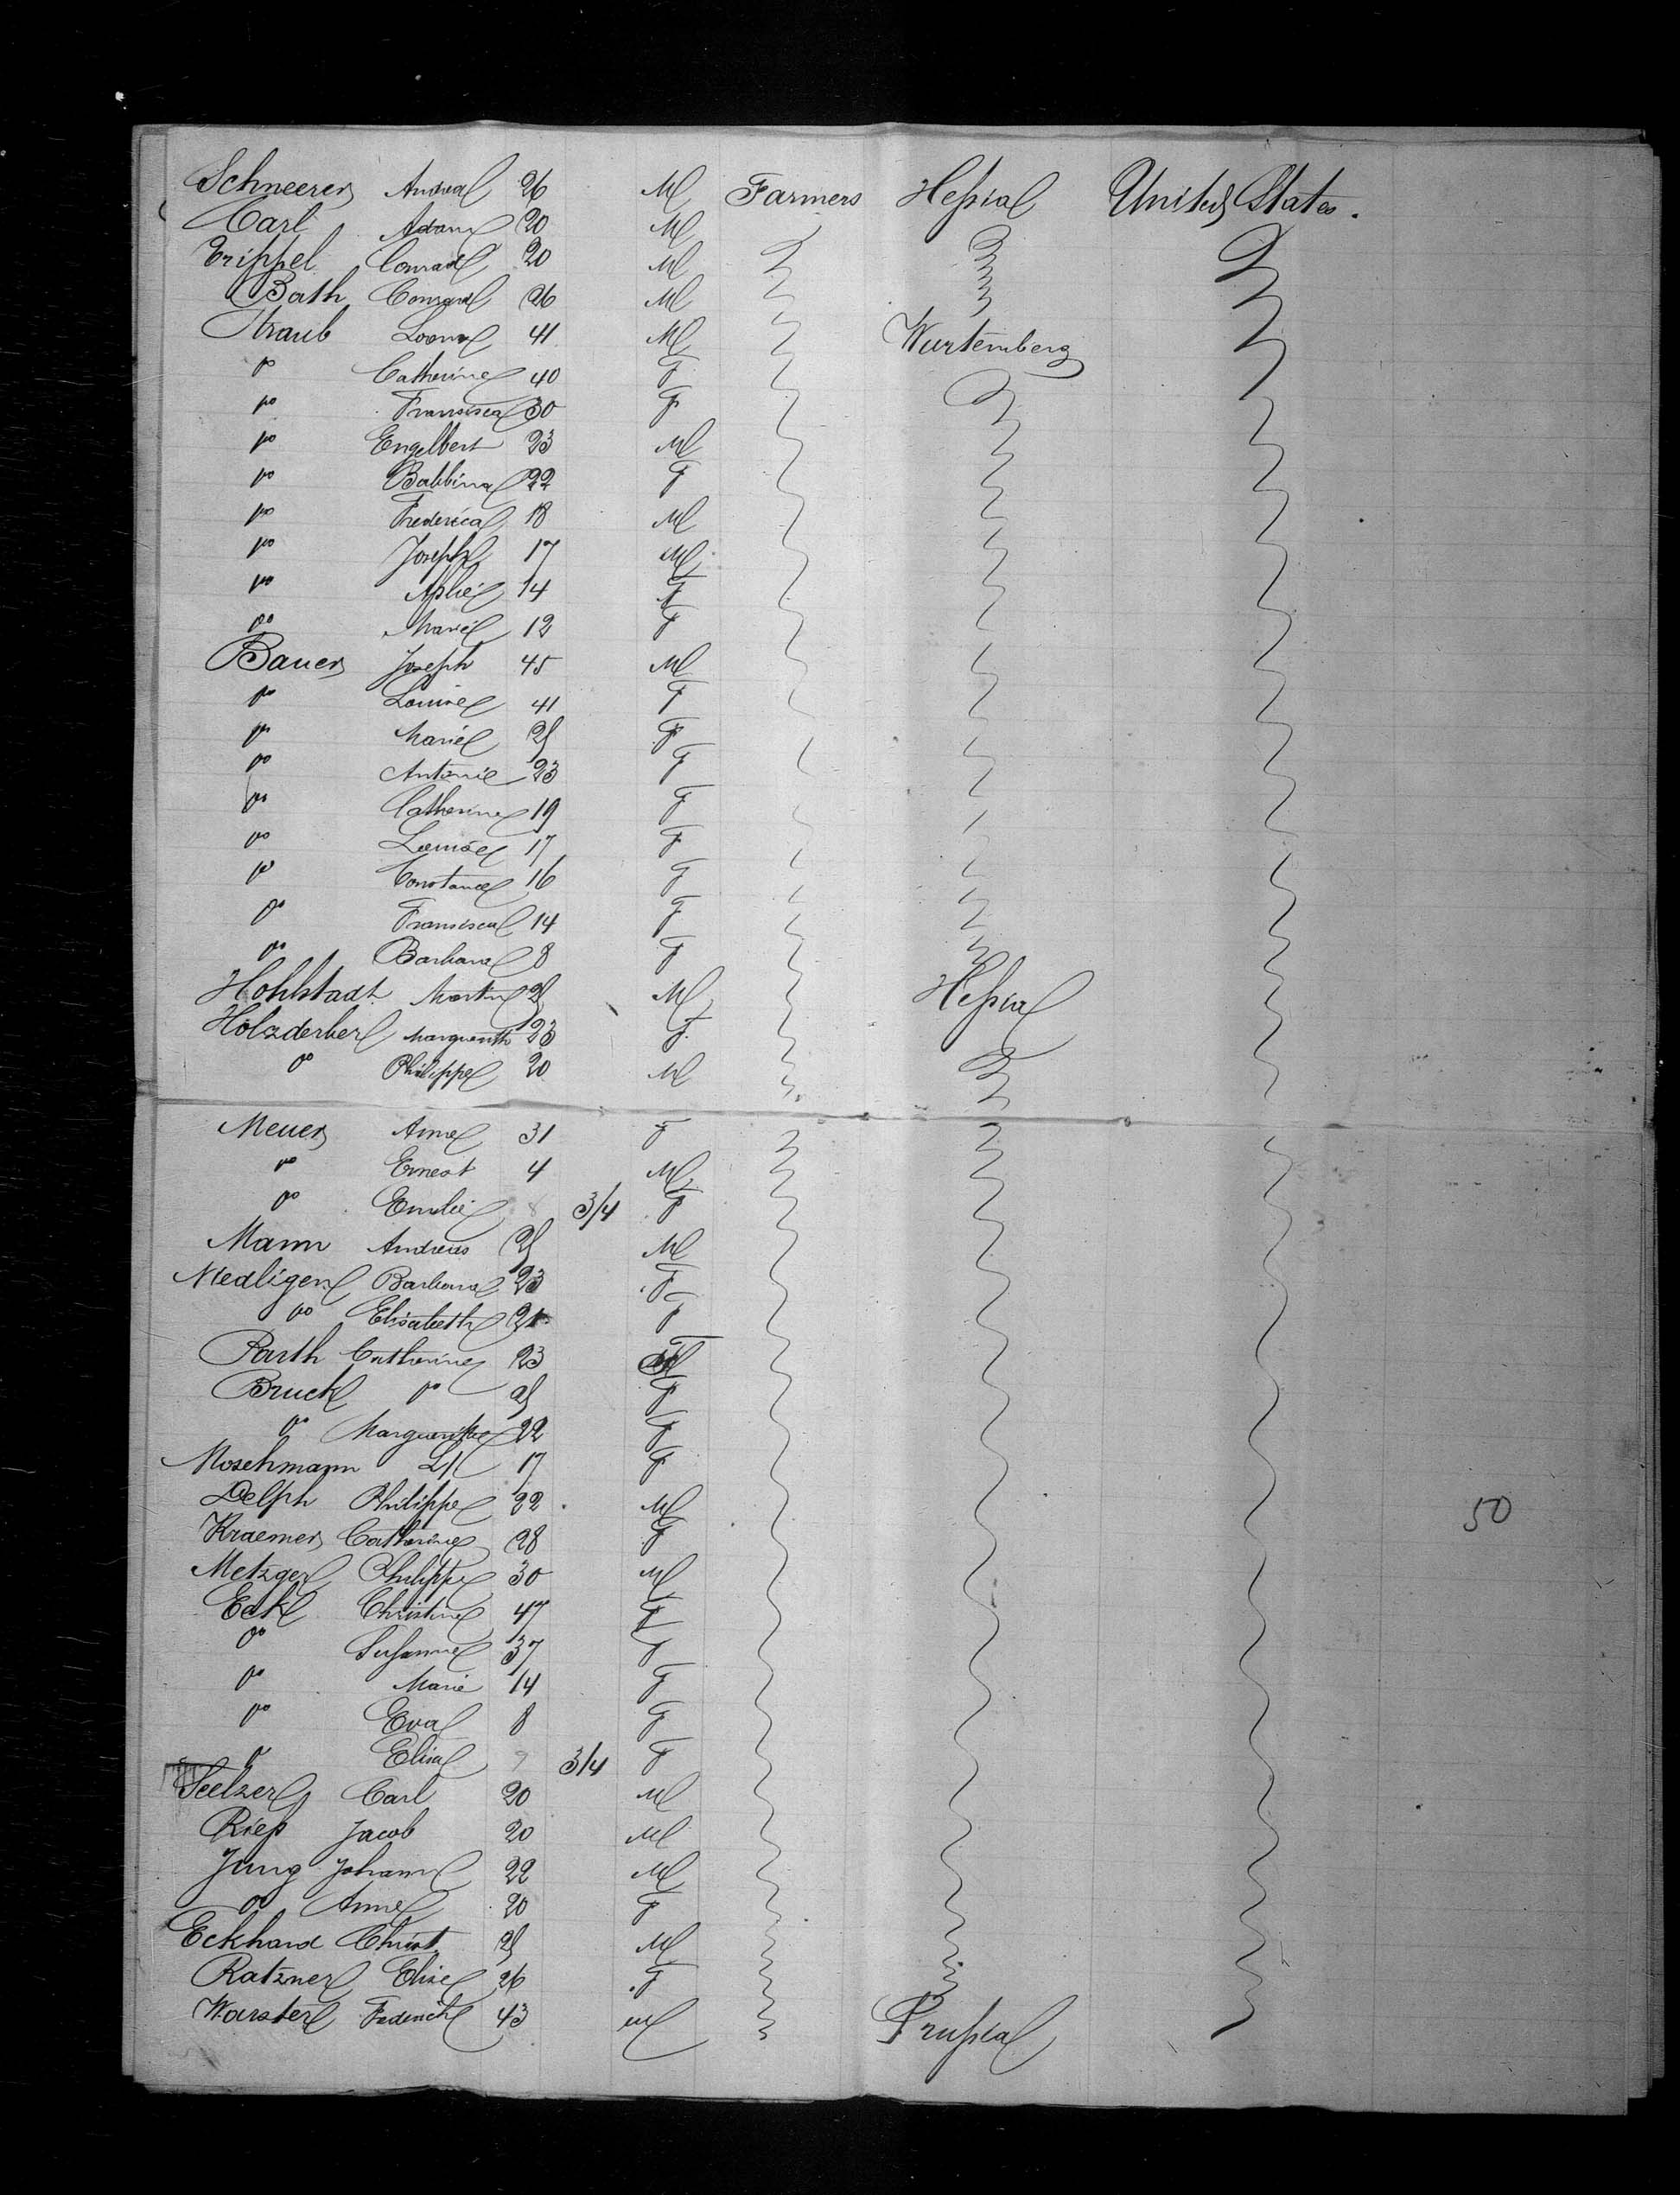 Schneerer Andrea 26 M Farmers Hessia United States.
Carl Adam 20 M
Erippel Conrad 20 M
Bath Conrad 26 M
Straub 41 M Wurtemberg
do Catherine 40 F
do Francisca 30 F
do Engelbert 23 M
do Balbina 22 F
do Frederica 18 M
do Joseph 17 M
do 14 F
do Marie 12 F
Bauer Joseph 45 M
do Louise 41 F
do Marie 25 F
do Antonie 23 F
do Catherine 19 F
do Louise 17 F
do Constance 16 F
do Francisca 14 F
do Barbara 8 F
Hohlstadt Martin 25 M Hessia
Holzderber Marguerith 23 F.
do Philippe 20 M
Meuer Anne 31 F
do Ernest 4 M
do Emilie 3/4 F
Mann Andreas 25 M
Medligen Barbara 23 F
do Elisabeth 21 F
Parth Catherine 23
Bruck do 25 F
do Marguerithe 22 F
Moschmann 17 F
Delph Philippe 22 M
50
Kraemer Catherine 28 F
Metzger Philippe 30 M
Eckl Christine 47 F
do Susanne 37 F
do Marie 14 F
do Eva 8 F
do Elisa 3/4 F
Seelzer Carl 20 M
Riess Jacob 20 M
Jung Johann 22 M
do Anne 20 F
Eckhard Christ. 25 M
Ratzner Elise 26 F
Warster Federick 43 M Prussia